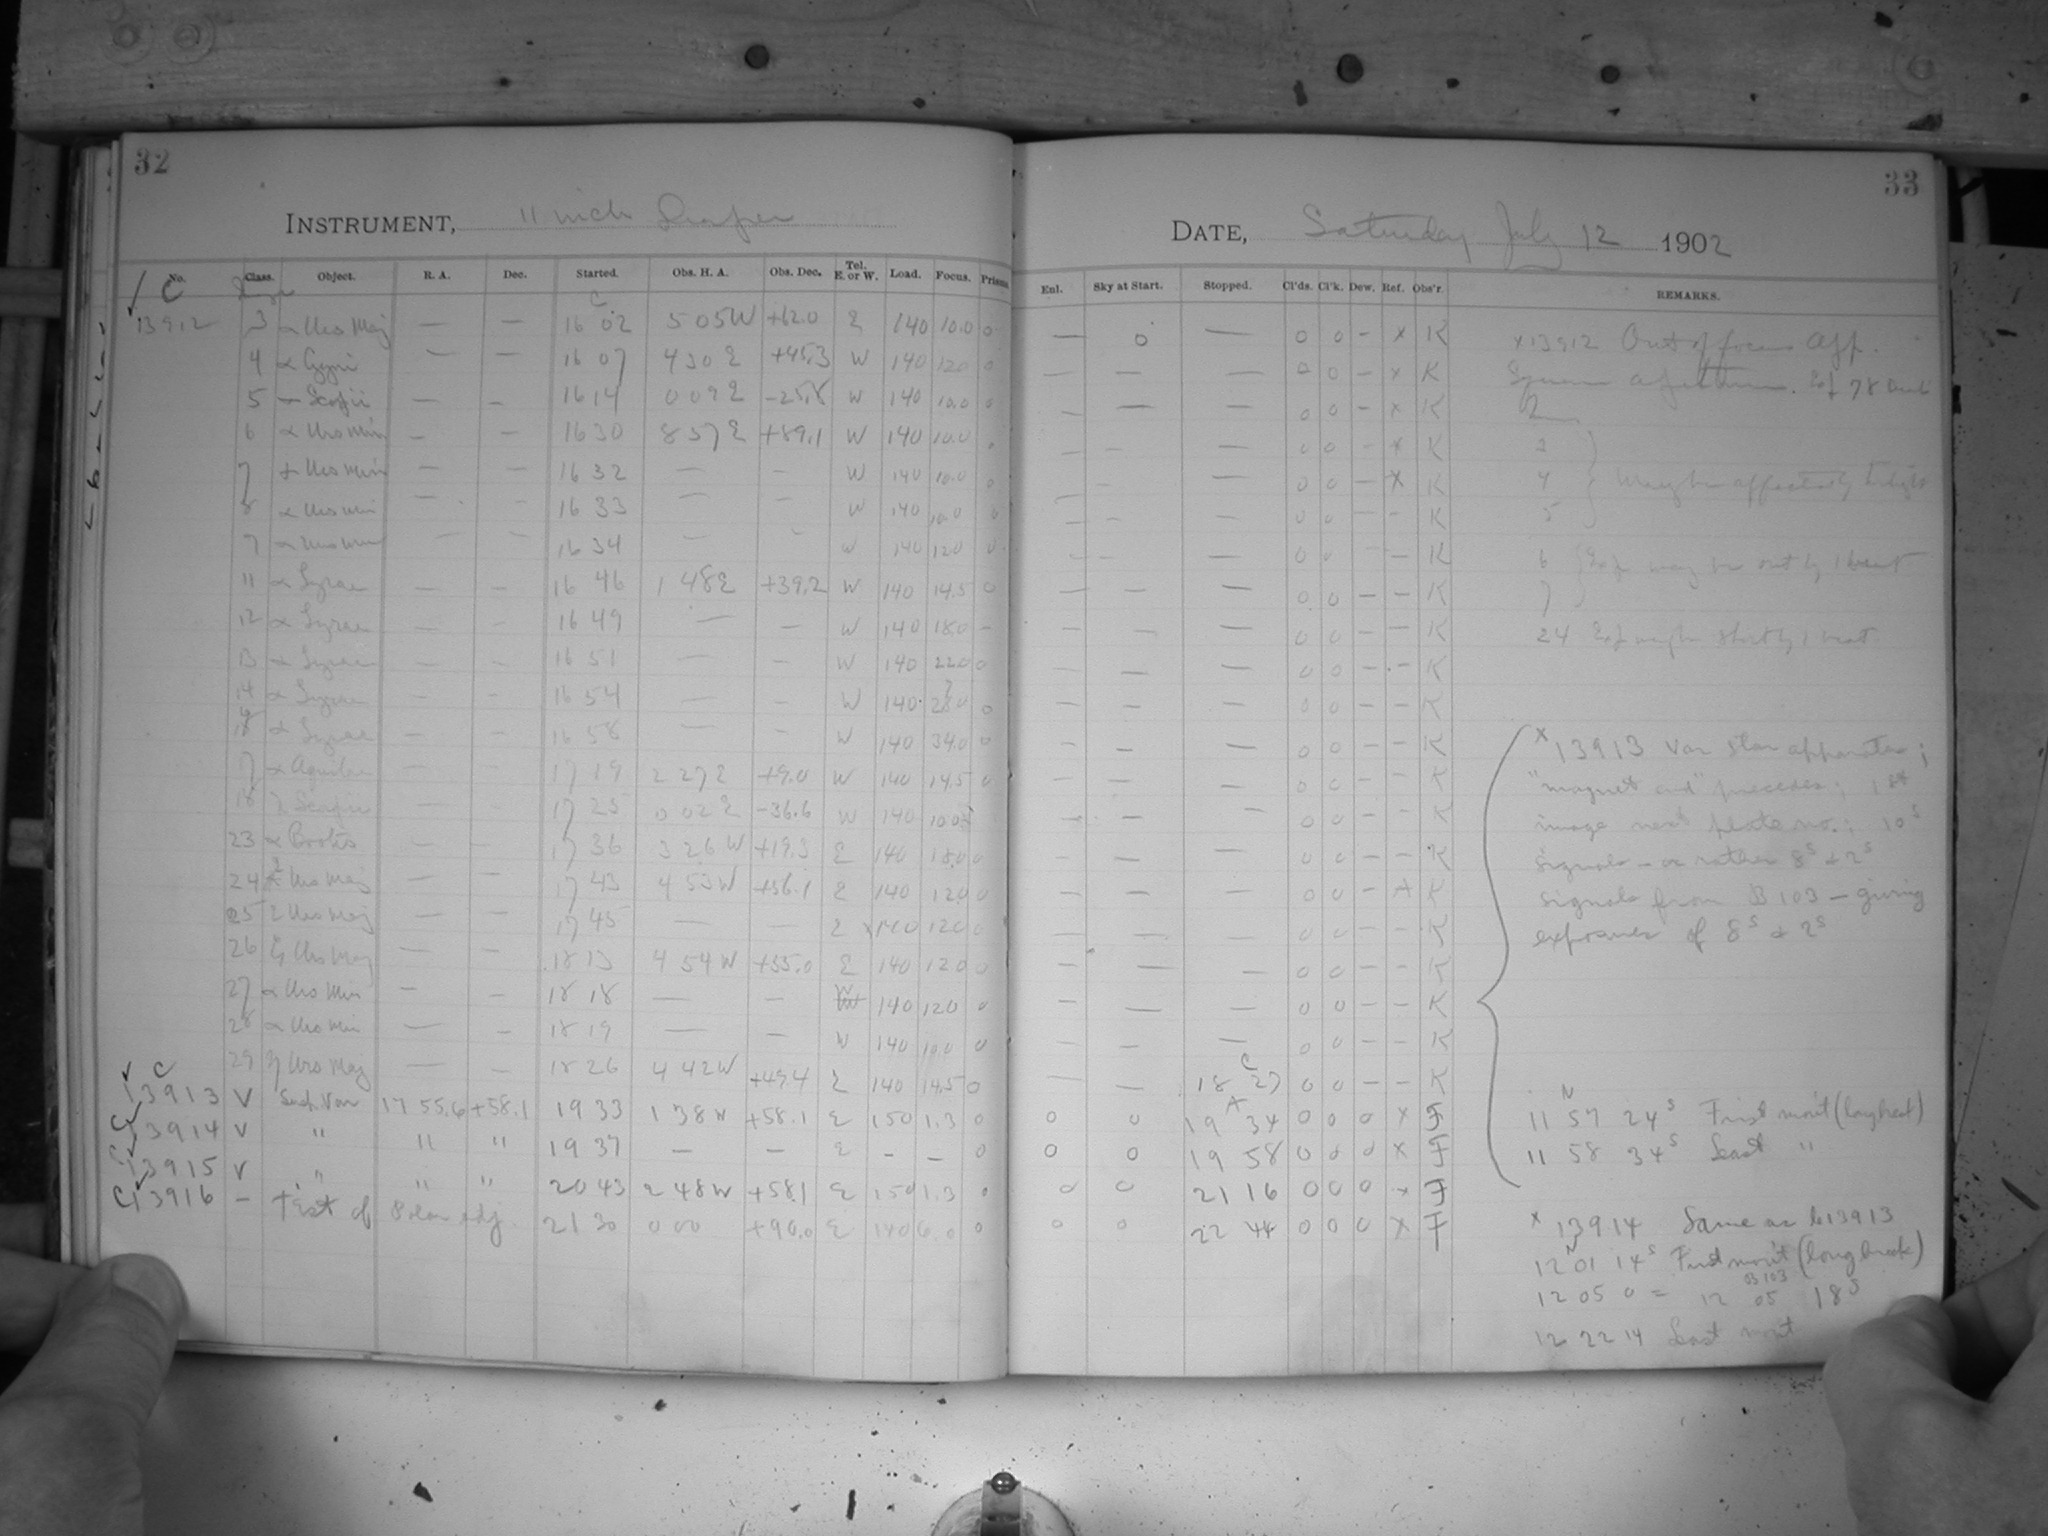 32
INSTRUMENT, 11 inch Draper
No. Class. Object. R. A. Dec. Started. Obs. H. A. Obs. Dec. Tel. E. or W. Load. Focus. Prisms
C
13912 3 α Urs Maj — — 16 02 5 05 W +62.0 E 140 10.0 0
4 α Cygni — — 16 07 4 30 E +45.3 W 140 12.0 0
5 α Scorpii — — 16 14 0 09 E W 140 10.0 0
6 α Urs Min — — 16 30 8 57 E +89.1 W 140 10.0
7 α Urs Min — — 16 32 — — W 140 10.0 0
8 α Urs Min — — 16 33 — — W 140 10.0 0
α Urs Min — — 16 34 — — W 140 12.0 0
11 α Lyrae — — 16 46 1 48 E +39.2 W 140 14.5 0
12 α Lyrae — — 16 49 — — W 140 18.0 —
13 α Lyrae — — 16 51 — — W 140 22.0 0
14 α Lyrae — — 16 54 — — W 140 0
α Lyrae — — 16 58 — — W 140 34.0 0
17 α Aquilae — — 17 19 2 27 E +9.0 W 140 14.5 0
18 Scorpii — — 17 25 0 02 E -36.6 W 140 10.0
23 α Bootis — — 17 36 3 26 W +19.3 E 140 18.0 0
24 Urs Maj — — 17 43 4 53 W +56.1 E 140 12.0 0
25 Urs Maj — — 17 45 — — E 140 12.0 0
26 Urs Maj — — 18 13 4 54 W +55.0 E 140 12.0 0
27 α Urs Min — — 18 18 — — W 140 12.0 0
28 α Urs Min — — 18 19 — — W 140 10.0 0
29 η Urs Maj — — 18 26 4 42 W +49.4 E 140 14.5 0
13913 V Var 17 55.6 +58.1 19 33 1 38 W +58.1 E 150 1.3 0
13914 V " " " 19 37 — — E - - 0
13915 V " " " 20 43 2 48 W +58.1 E 150 1.3 0
13916 — Test of Polar adj. 21 30 0 00 +90.0 E 140 6.0 0
33
DATE, Saturday July 12 1902
Enl. Sky at Start. Stopped. Cl'ds. Cl'k. Dew. Ref. Obs'r. REMARKS.
— 0 — 0 0 – x K
— — — 0 0 – x K
— — — 0 0 – x K
- - — 0 0 – x K
— - — 0 0 – x K
— - — 0 0 – – K
- - — 0 0 – – K
— — — 0 0 – – K
— — — 0 0 – – K
— — — 0 0 – – K
— — — 0 0 – – K
— — — 0 0 – – K
— — — 0 0 – – K
— — — 0 0 – – K
— — — 0 0 – – K
— — — 0 0 – x K
— — — 0 0 – – K
— — — 0 0 – – K
— — — 0 0 – – K
— — — 0 0 – – K
— — 18 27 0 0 – – K
0 0 19 34 0 0 0 x F
0 0 19 58 0 0 0 x F
0 0 21 16 0 0 0 x F
0 0 22 44 0 0 0 x F
x 13912 Out of focus app.
Square Exp 78
2
3
4 May be affected by
5
6 Exp may be out by 1 beat
7
24 Exp might short by 1 beat
x 13913 Var star apparatus;
"magnet end" precedes; 1st
image next plate no.; 10s
signals – or rather 8s & 2s
signals from B 103 – giving
exposures of 8s & 2s
11 57 24s First mov't (long beat)
11 58 34s Last "
x 13914 Same as 13913
12 01 14s First mov't (long break)
B 103
12 05 0 = 12 05 18s
12 22 14 Last mov't